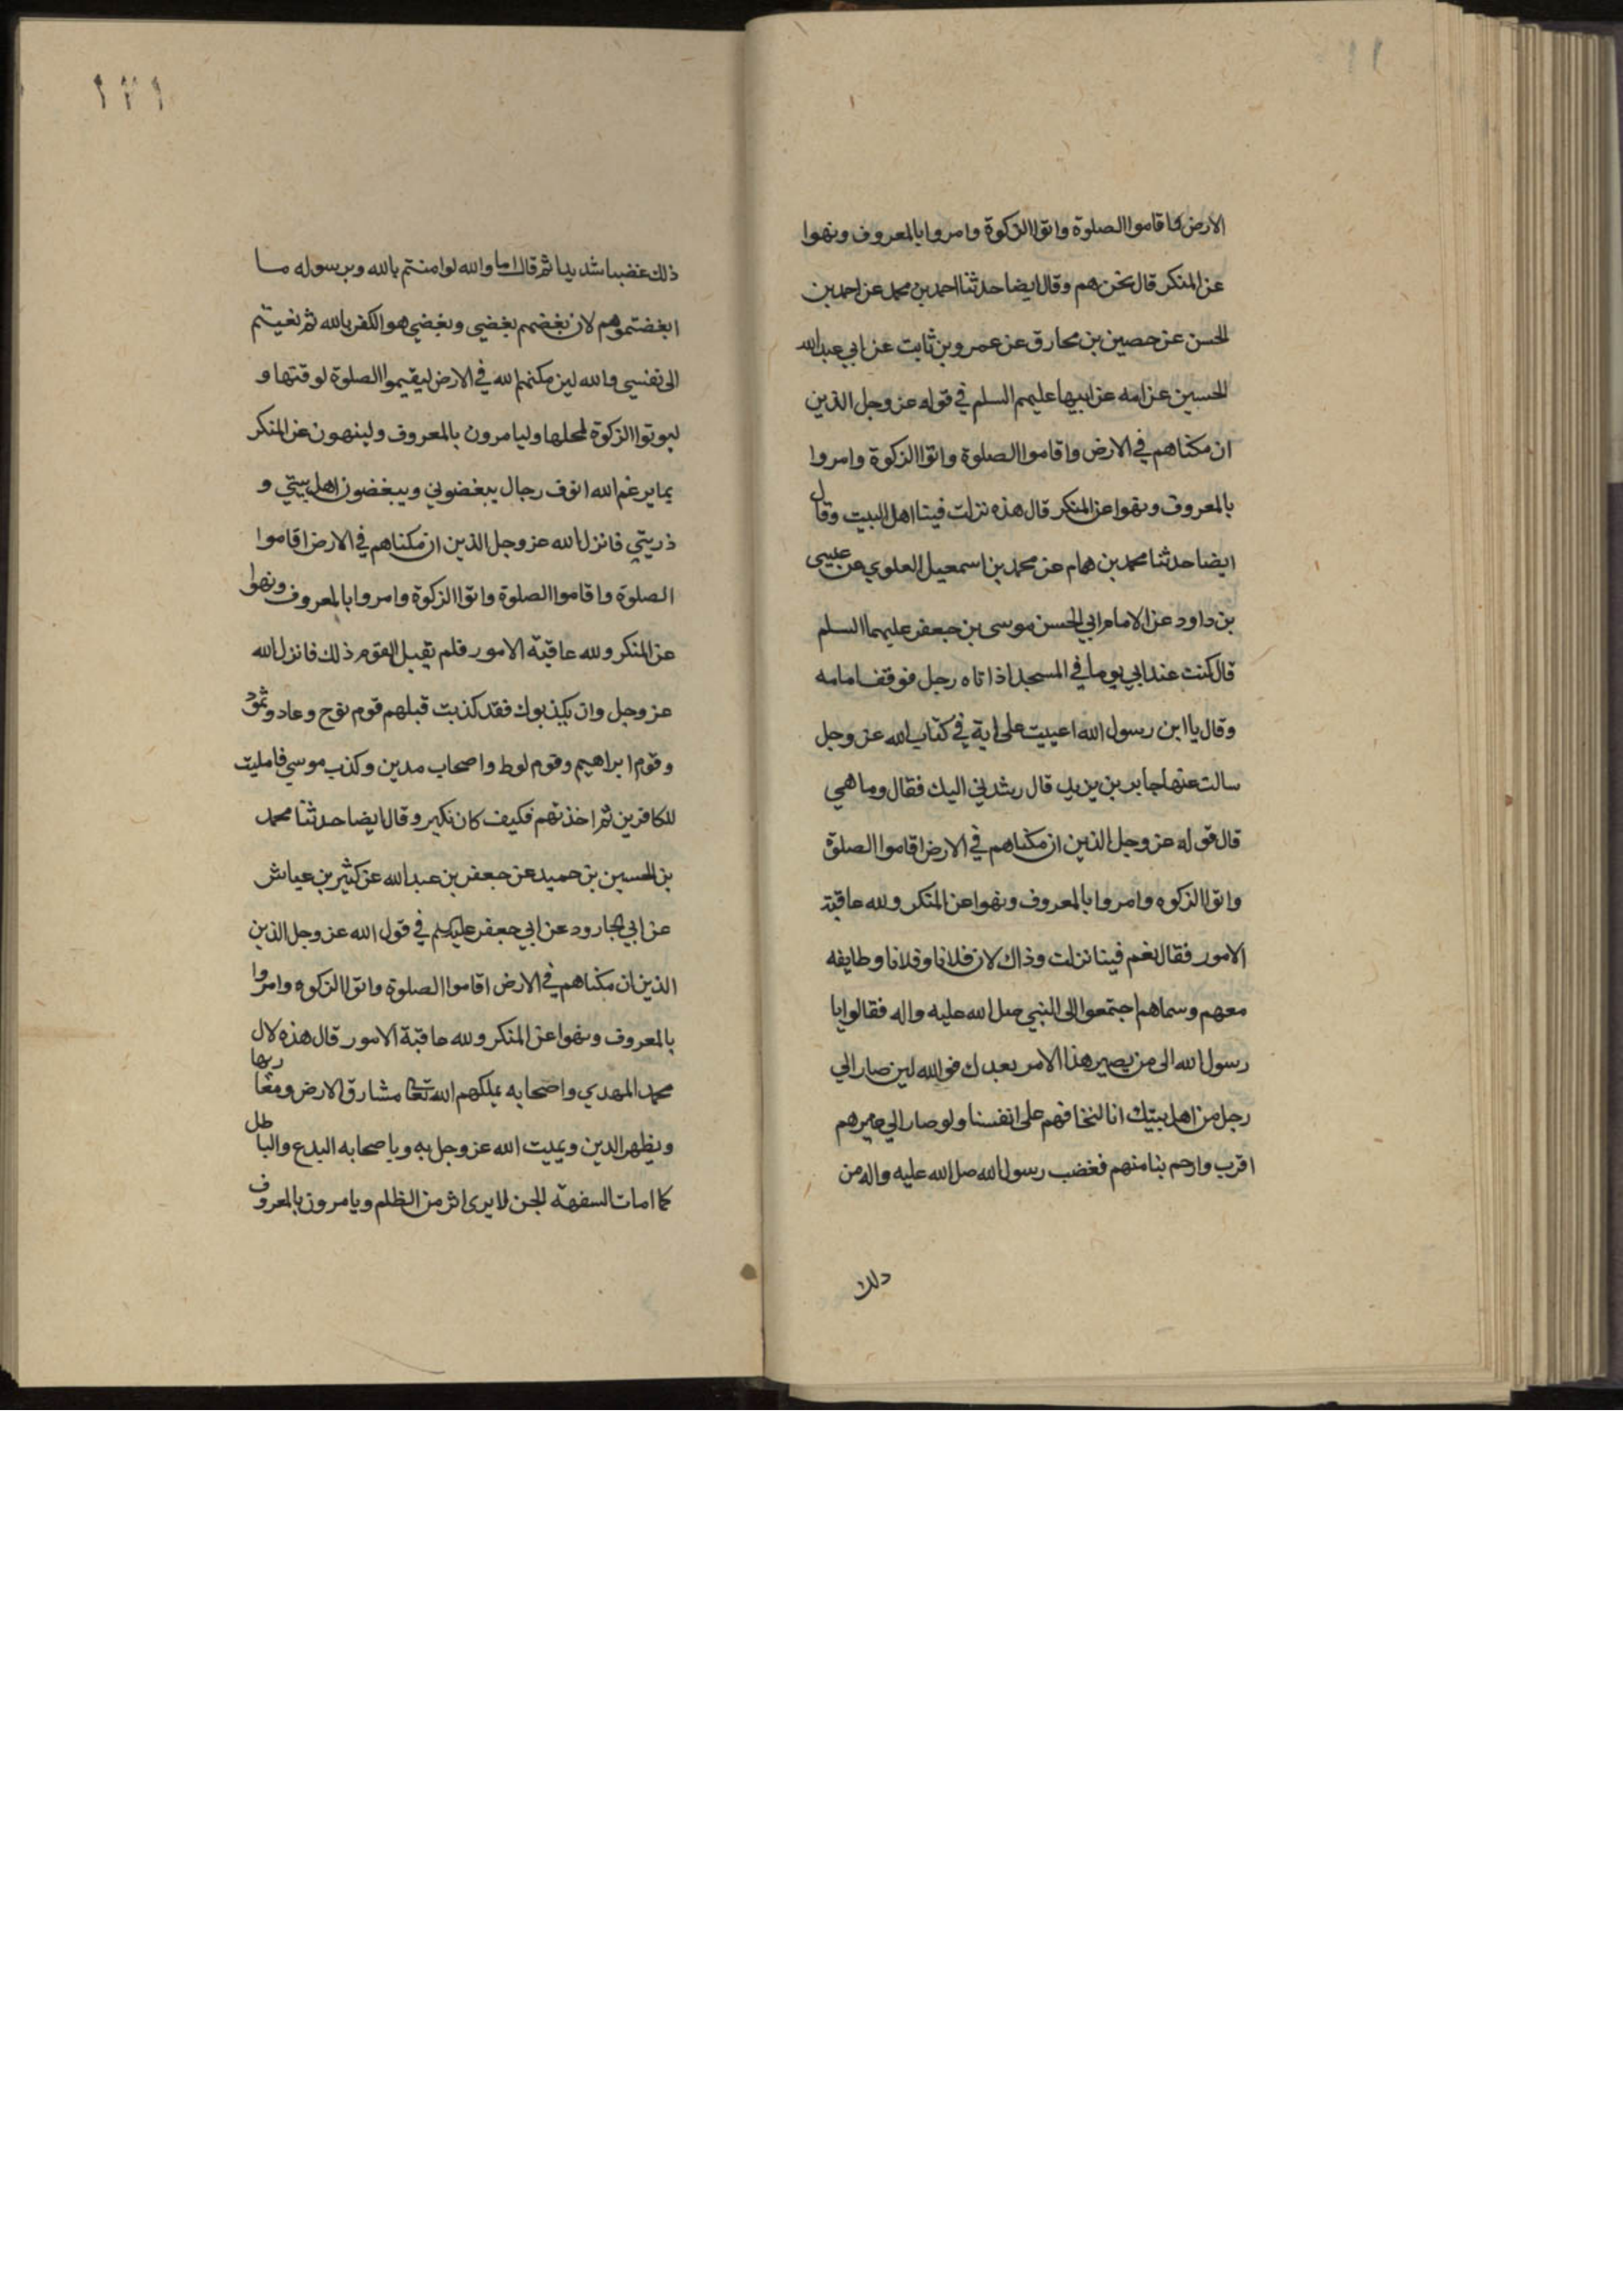 الارض واقاموا الصلوة واتوا الزكوة وامروا بالمعروف ونهوا
عن المنكر قال نحن هم وقال ايضا حدثنا احمد بن محمد عن احمد بن
الحسن عن حصين بن مخارق عن عمرو بن ثابت عن ابي عبد الله
الحسين عن امه عن ابيها عليهم السلم في قوله عز وجل الذين
ان مكناهم في الارض واقاموا الصلوة واتوا الزكوة وامروا
بالمعروف ونهوا عن المنكر قال هذه نزلت فينا اهل البيت وقال
ايضا حدثنا محمد بن همام عن محمد بن اسمعيل العلوي عن عيسى
بن داود عن الامام ابي الحسن موسى بن جعفر عليهما السلم
قال كنت عند ابي يوما في المسجد اذ اتاه رجل فوقف امامه
وقال يا ابن رسول الله اعييت على اية في كتاب الله عز وجل
سالت عنها جابر بن يزيد قال رشدني اليك فقال وما هي
قال قوله عز وجل الذين ان مكناهم في الارض اقاموا الصلوة
واتوا الزكوه وامروا بالمعروف ونهوا عن المنكر ولله عاقبة
الامور فقال نعم فينا نزلت وذاك لان فلانا وفلانا وطايفه
معهم وسماهم اجتمعوا الى النبي صلى الله عليه واله فقالوا يا
رسول الله الى من يصير هذا الامر بعدك فوالله لين صار الي
رجل من اهل بيتك انا لنخافهم على انفسنا ولو صار الي غيرهم
اقرب وارحم بنا منهم فغضب رسول الله صل الله عليه واله من
ذلك
١٢١
ذلك غضبا شديدا ثم قال اما والله لو امنتم بالله وبرسوله ما
ابغضتموهم لان بغضهم بغضي وبغضي هو الكفر بالله ثم نعيتم
الى نفسي والله لين مكنهم الله في الارض ليقيموا الصلوة لوقتها و
ليوتوا الزكوة لمحلها وليامرون بالمعروف ولينهون عن المنكر
بما يرغم الله انوف رجال يبغضوني ويبغضون اهل بيتي و
ذريتي فانزل الله عز وجل الذين ان مكناهم في الارض اقاموا
الصلوة واقاموا الصلوة واتوا الزكوة وامروا بالمعروف ونهوا
عن المنكر ولله عاقبة الامور فلم يقبل القوم ذلك فانزل الله
عز وجل وان يكذبوك فقد كذبت قبلهم قوم نوح وعاد وثمود
وقوم ابراهيم وقوم لوط واصحاب مدين وكذب موسي فامليت
للكافرين ثم اخذتهم فكيف كان نكير وقال ايضا حدثنا محمد
بن الحسين بن حميد عن جعفر بن عبد الله عن كثير بن عياش
عن ابي الجارود عن ابي جعفر عليه السلم في قول الله عز وجل الذين
الذين ان مكناهم في الارض اقاموا الصلوة واتوا الزكوه وامروا
بالمعروف ونهوا عن المنكر ولله عاقبة الامور قال هذه لال
محمد المهدي واصحابه يملكهم الله تعا مشارق الارض ومغاربها
ويظهر الدين ويميت الله عز وجل به وباصحابه البدع والباطل
كما امات السفهة الحق لا يرى اثر من الظلم ويامرون بالمعروف